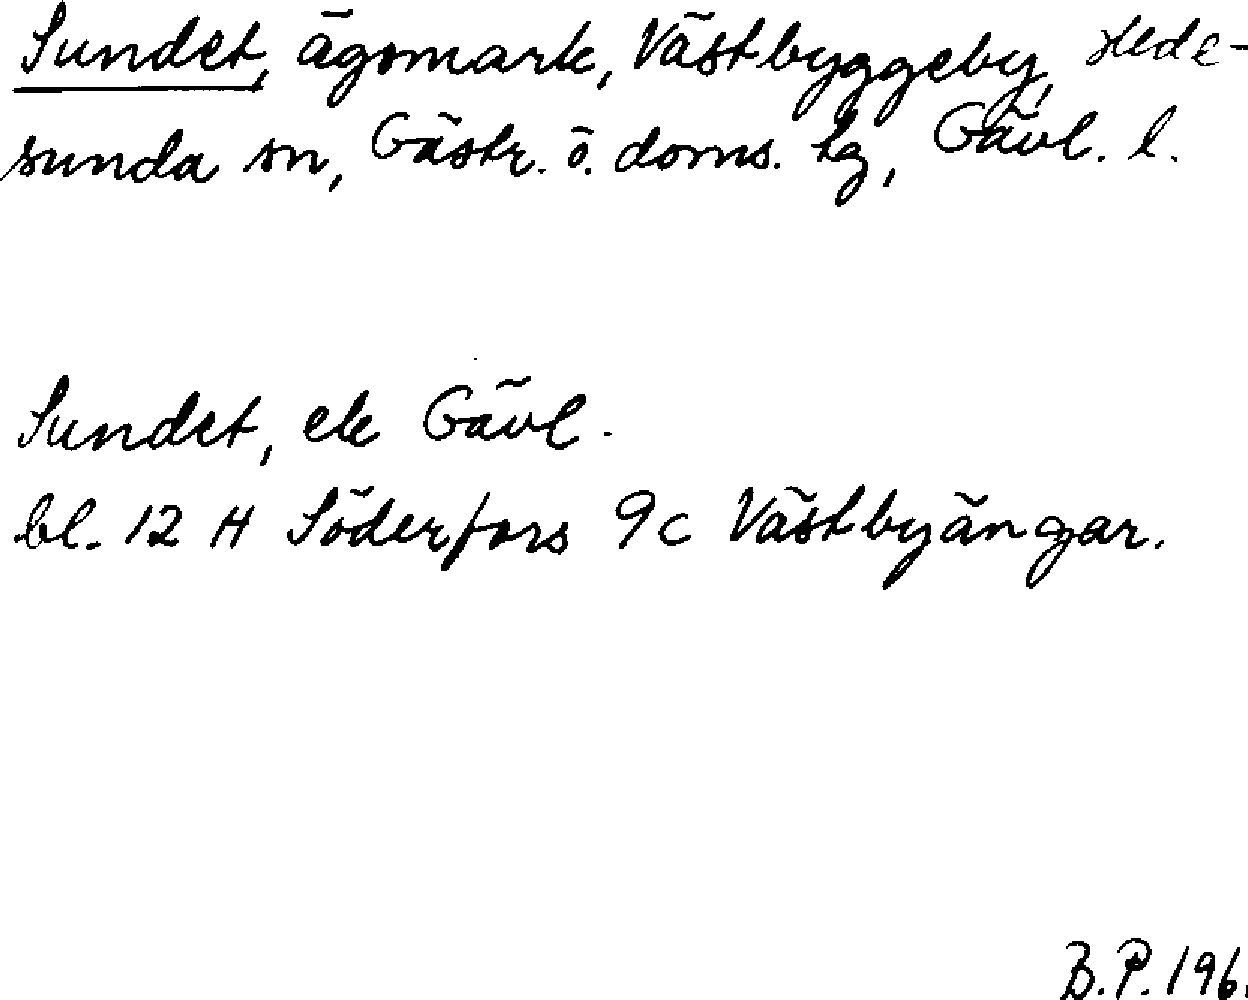 Sundet, ägomark, Västbyggeby, Hede-
sunda sn, Gästr. ö. doms. tg, Gävl. l.
Sundet, ek Gävl.
bl. 12 H Söderfors 9c Västbyängar.
B.P. 196